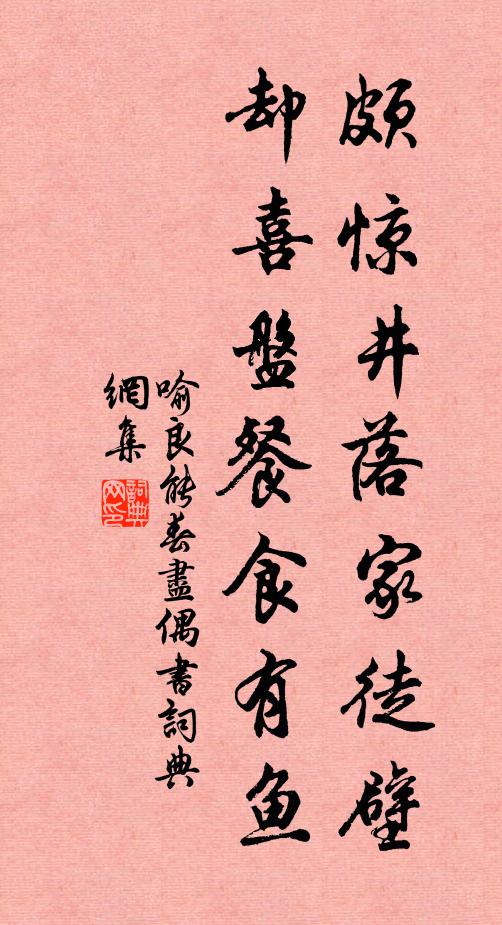 颇惊井落家徒壁
却喜盤餐食有鱼
喻良能春盡偶書詞典
網集
詞典网印